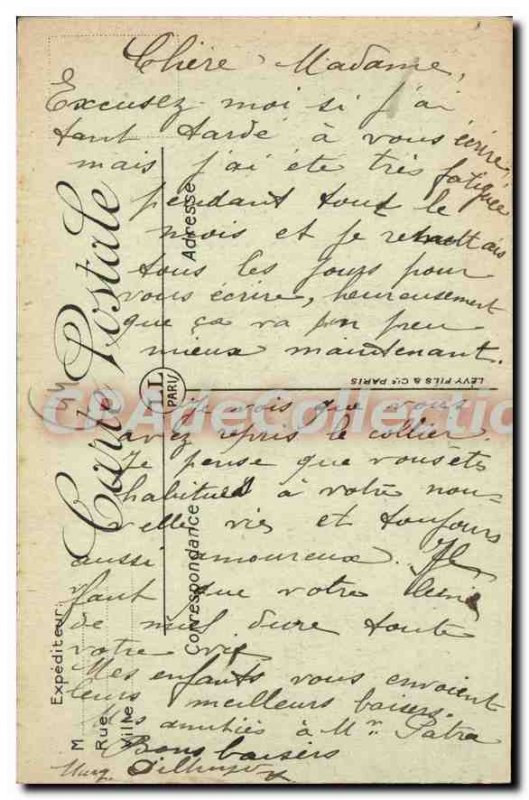 Chère Madame,
Excusez moi si j'ai
tant tardé à vous écrire,
mais j'ai été très fatiguée
pendant tout le
mois et je remettais
tous les jours pour
vous écrire, heureusement
que ça va un peu
mieux maintenant.
je vois que vous
avez repris le collier.
Je pense que vous êtes
habitués à votre nou-
velle vie et toujours
aussi amoureux. Il
faut que votre lune
de miel dure toute
votre vie
Mes enfants vous envoient
leurs meilleurs baisers.
Mes amitiés à Mr
Bons baisers
Carte Postale
Adresse
Correspondance
LL
PARIS
LEVY FILS & Cie PARIS
Expéditeur:
M
Rue
Ville
CPADeCollection